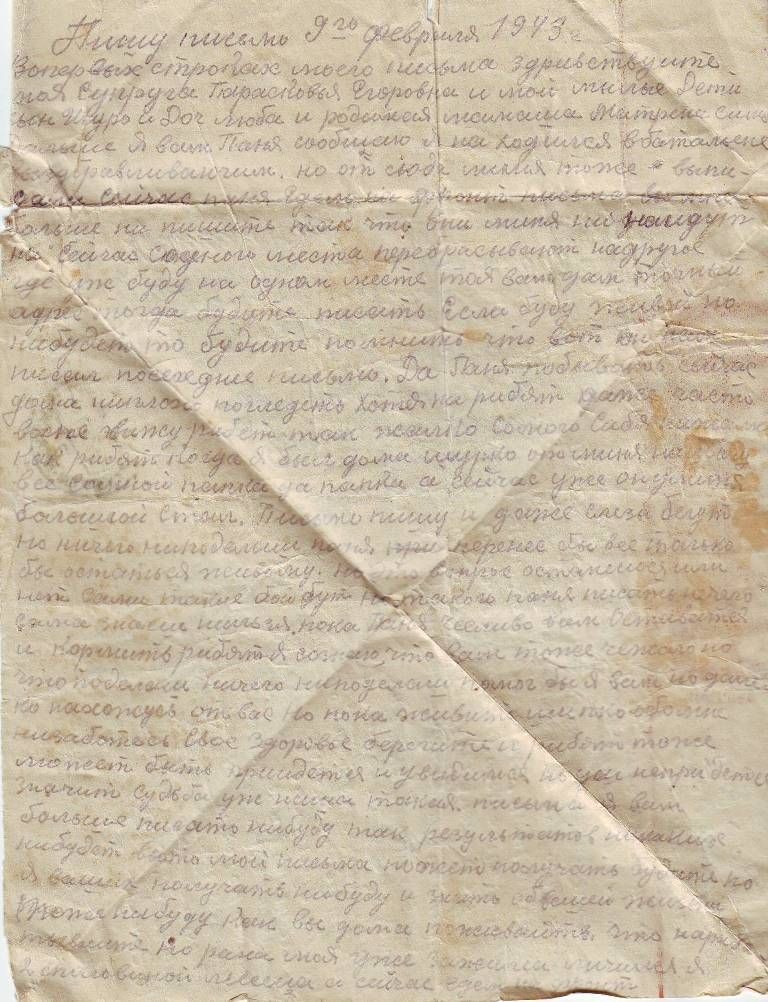 Пишу письмо 9го февраля 1943 г
Вопервых строках моего письма здравствуйте
моя Супруга Парасковья Егоровна и мои милые Дети
сын Шура и Доч Люба и родимая мамаша Матрена
дальше я вам Паня сообщаю я находился в батальене
выздаравливающим. но от сюда миня тоже выпи-
сали сейчас паня едем на фронт письма вы мне
больше ни пишите так что вни миня ни найдут
но сейчас содного места перебрасывают надругое
где уж буду на одном месте тоя вам дам точный
адрес тогда будите писать Если буду живой но
нибудет то будите помнить что вот он нам
писал последние письмо. Да Паня побывать сейчас
дома погледеть хотя на рибят даже часто
восне вижу рибят так жалко Самого Себя
как рибят когда я был дома шурка отминя
все Самной папка да папка а сейчас уже он
большой Стал. Письмо пишу и даже слеза бегут
но ничего ниподелаиш паня перенес бы все только
бы остаться живому. останимся или
нет Сами такие бои бут паня писать нечего
Сама знаеш нильзя. пока Паня Счесливо вам Оставатся
и кормить рибят я сознаю что Вам тоже чежало но
что поделаиш ничего ниподелаиш помог бы я вам но дале-
ко нахожусь отвас но пока живите обомне
низаботесь Свое Здоровье берегите и рибят тоже
может быть придется и увидимся
значит судьба уж наша такая. письма я вам
больше писать нибуду так результатов никаких
нибудет выто мои письма может получать будите но
я ваших получать нибуду и знать овашей жизни
тоже нибуду Как вы дома поживаите. что
но рана моя уже зажила личился я
2 споловиной месеца а сейчас едем